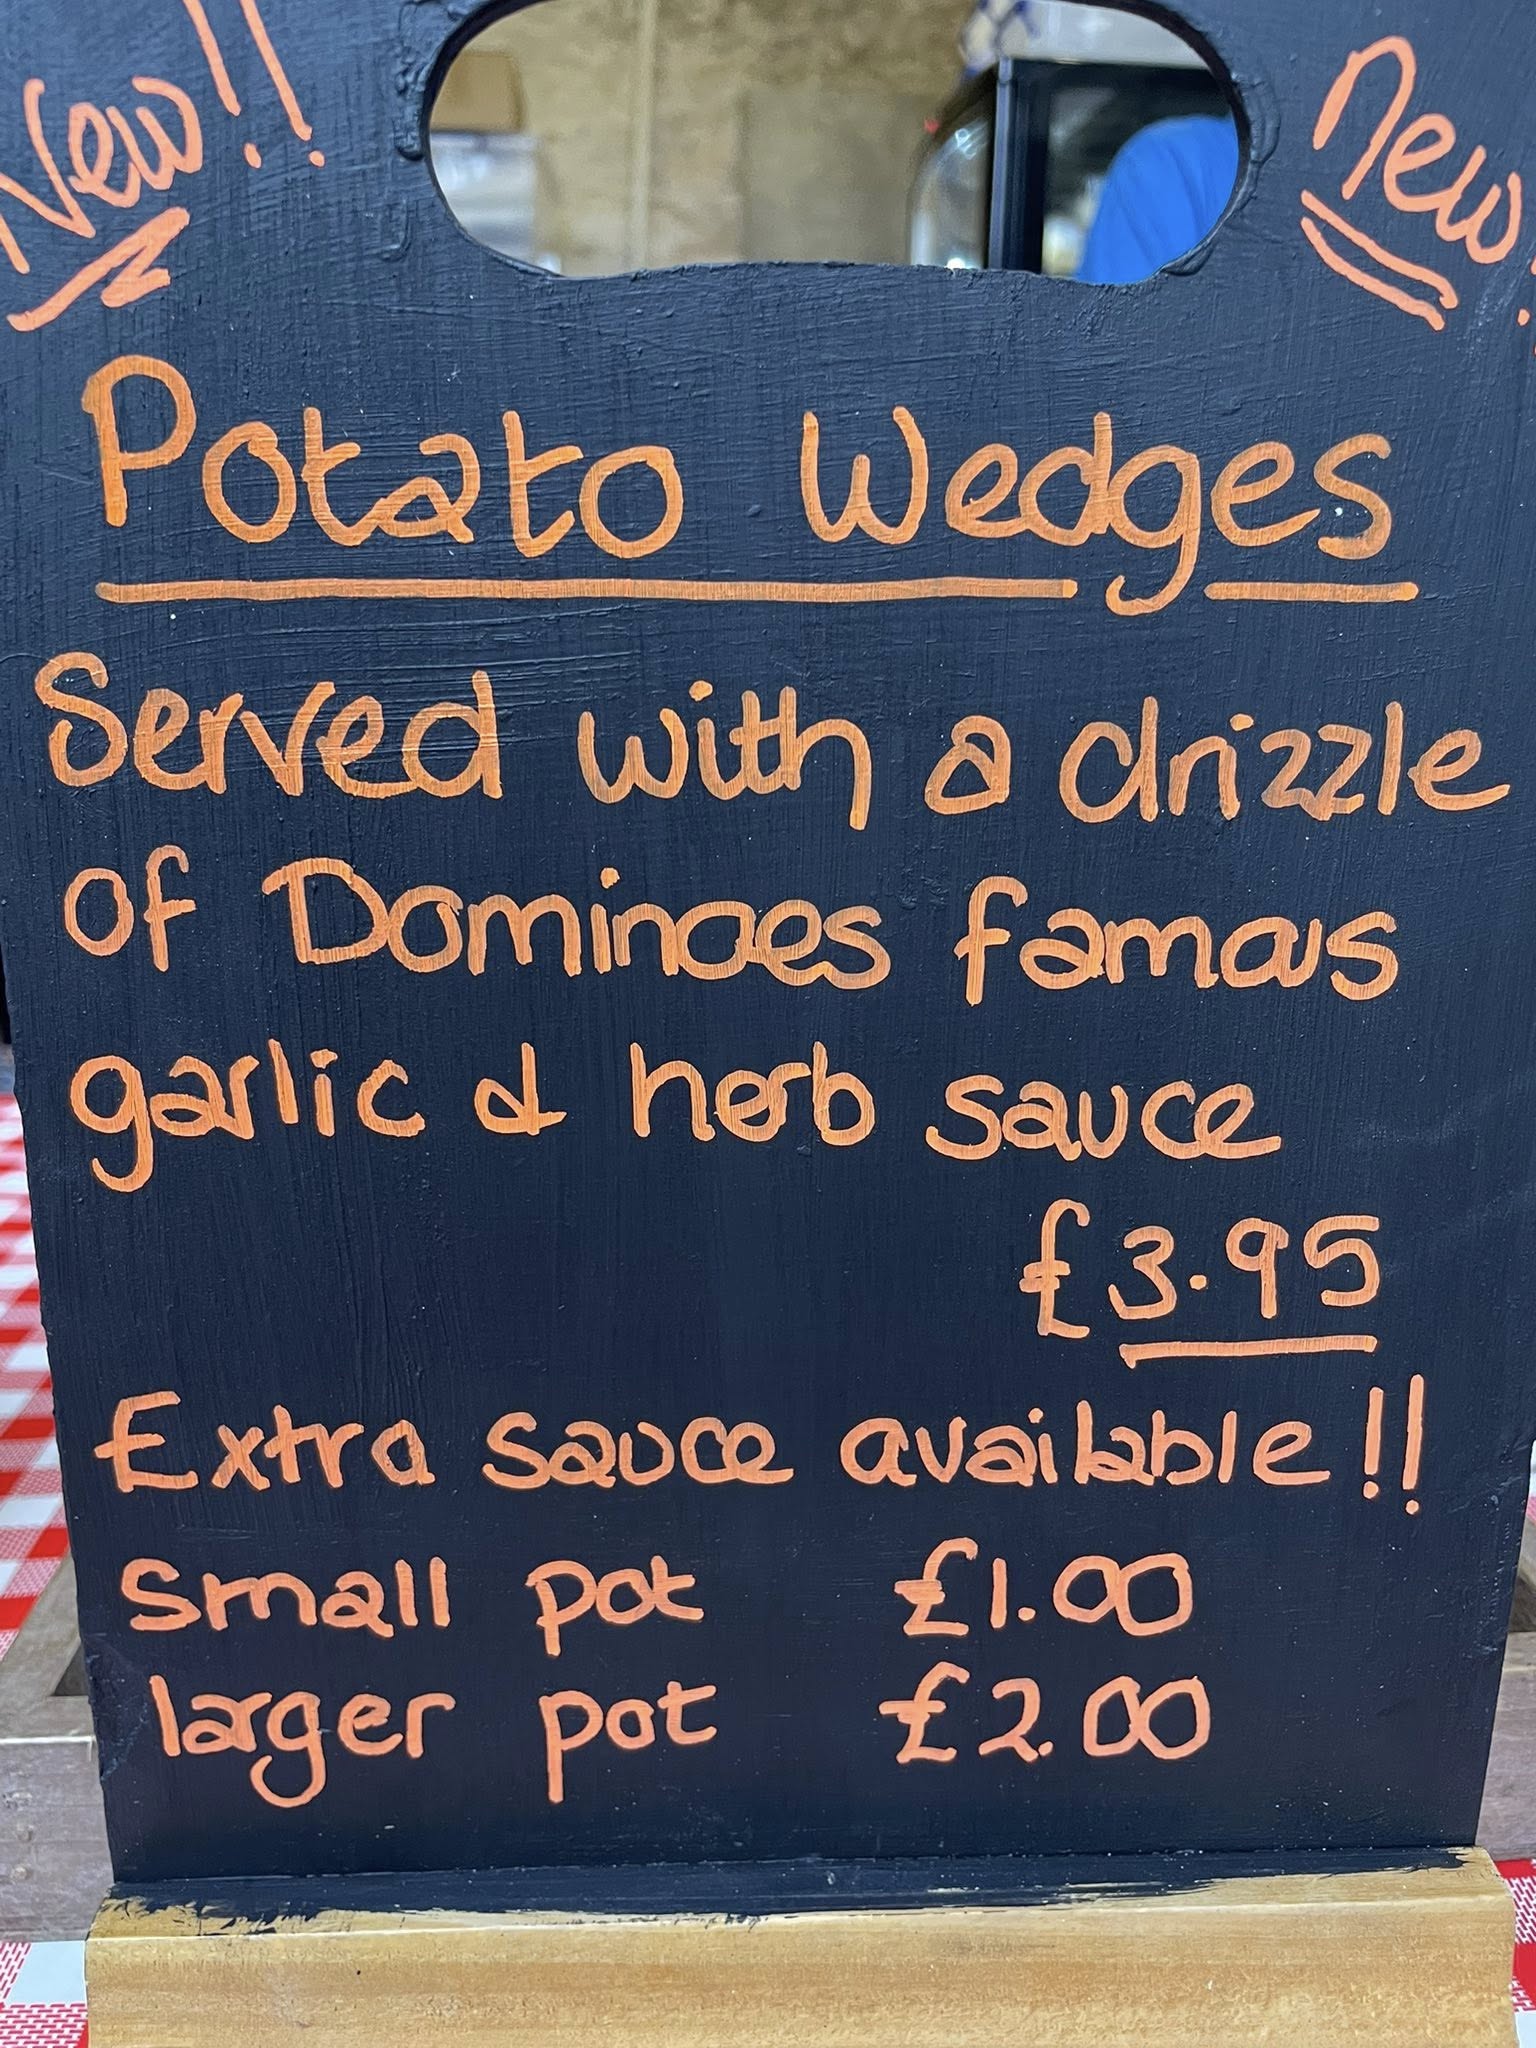 New!!
New!
Potato Wedges
Served with a drizzle
of Dominoes famous
garlic & herb sauce
£3.95
Extra sauce available!!
small pot £1.00
larger pot £2.00